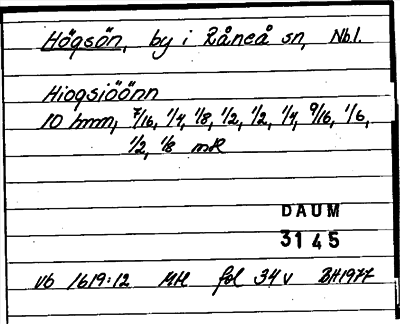 Högsön, by i Råneå sn, Nb.l.
Hiogsiöönn
10 hmm, 7/16, 1/4, 1/8, 1/2, 1/2, 1/4, 9/16, 1/6,
1/2, 1/8 mtl
DAUM
3145
Vb 1619:12 Ml fol 34 v BH1977